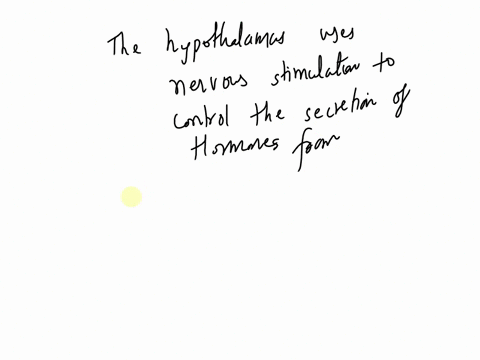 The hypothalamus uses
nervous stimulation to
control the secretion of
Hormones from